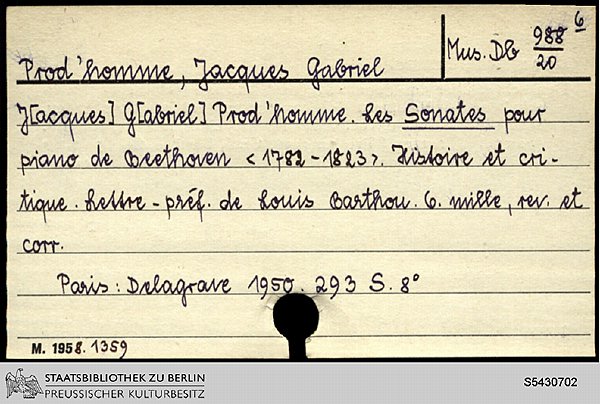 Prod'homme, Jacques Gabriel
Mus. Db 988/20 6
J[acques] G[abriel] Prod'homme. Les Sonates pour
piano de Beethoven <1782-1823>. Histoire et cri-
tique. Lettre-préf. de Louis Barthou. 6. mille, rev. et
corr.
Paris: Delagrave 1950. 293 S. 8°
M. 1958. 1359
STAATSBIBLIOTHEK ZU BERLIN
PREUSSISCHER KULTURBESITZ
S5430702